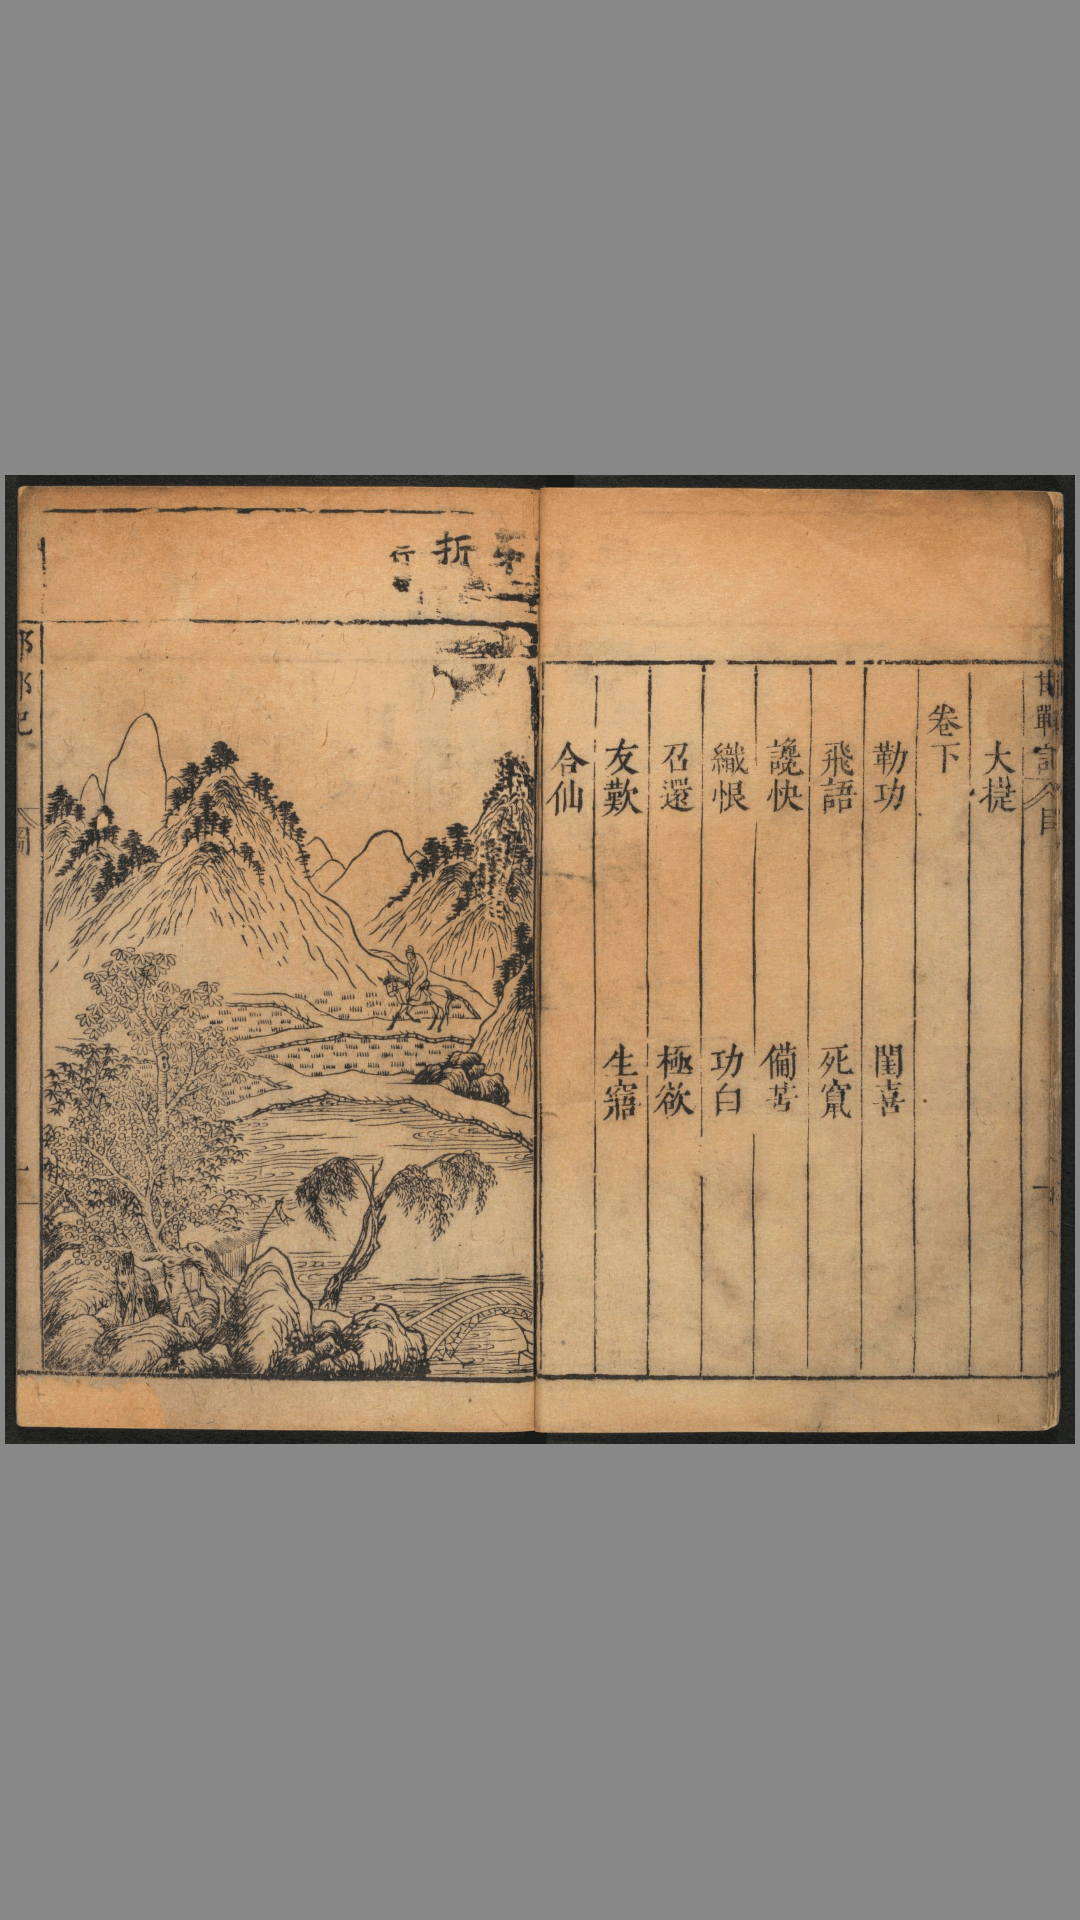 邯鄲記 目
大捷
卷下
勒功 閨喜
飛語 死竄
讒快 備苦
織恨 功白
召還 極欲
友歎 生寤
合仙
一
折
行
邯鄲記 圖
一